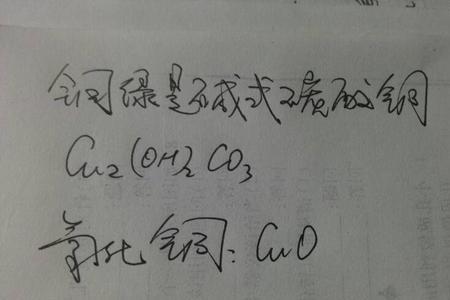 铜绿是碱式碳酸铜
Cu2(OH)2CO3
氧化铜：CuO